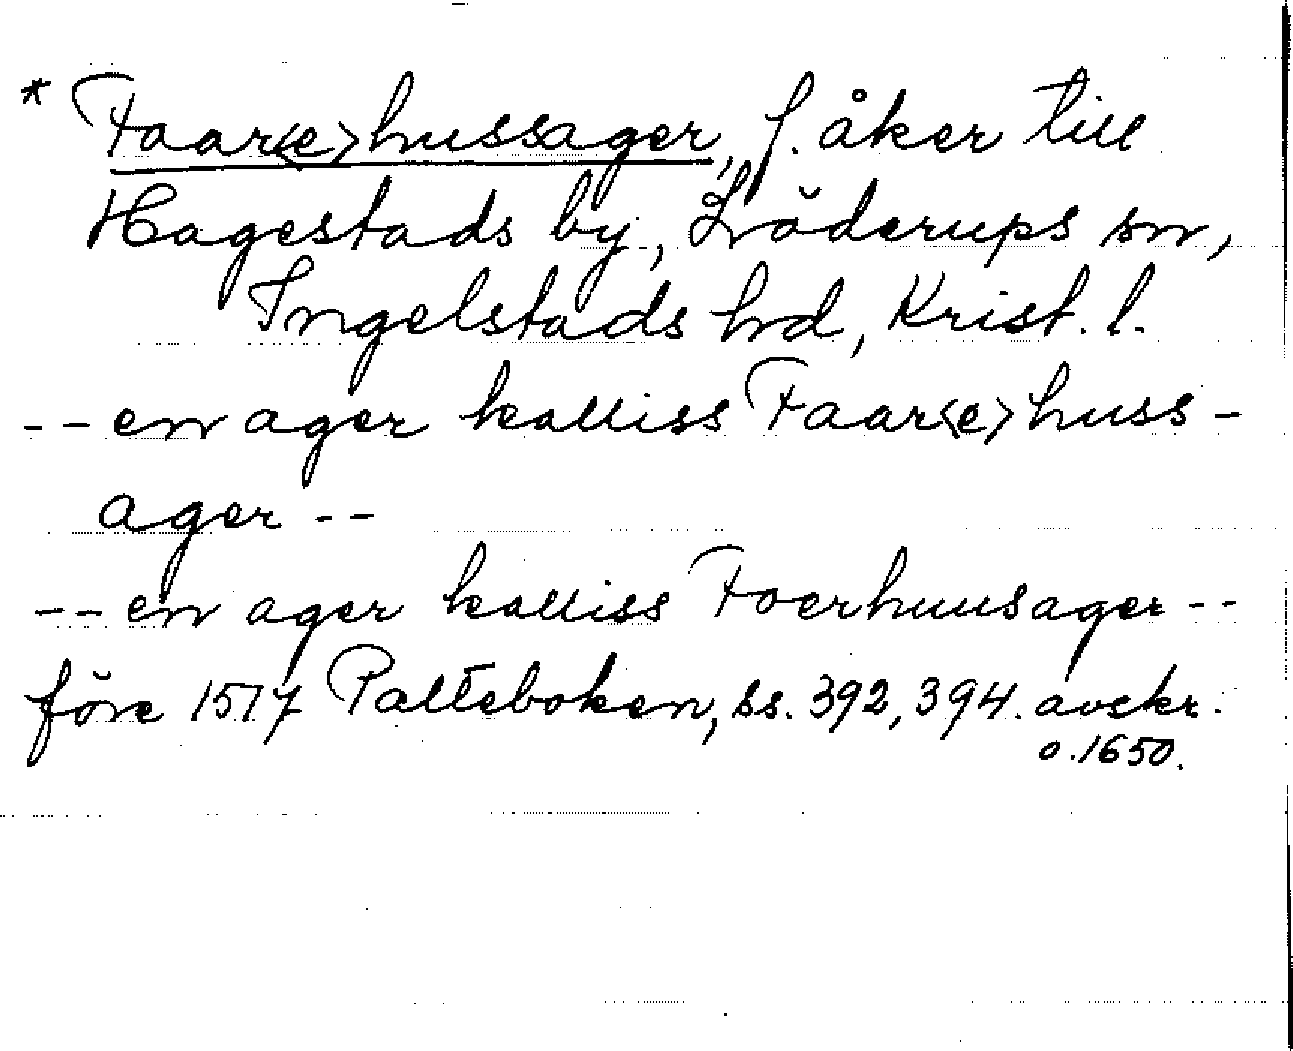 * Faar<e>hussager, f. åker till
Hagestads by, Löderups sn,
Ingelstads hd, Krist. l.
-- en ager kalliss Faar<e>huss-
ager --
-- en ager kalliss Foerhuusager --
före 1517 Palteboken, ss. 392, 394. avskr.
o. 1650.